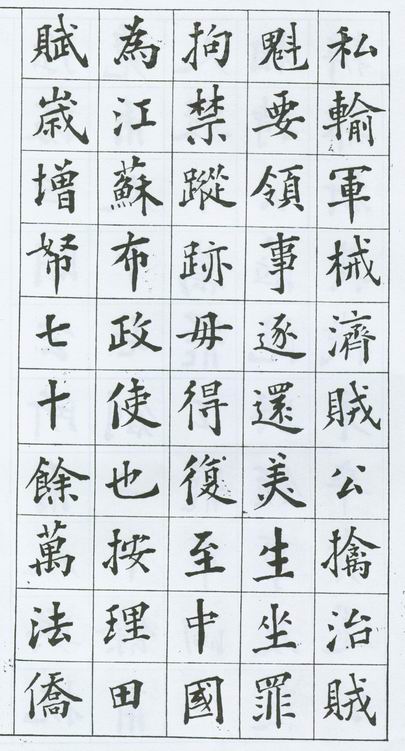 私輸軍械濟賊公擒治賊
魁要領事逐還美生坐罪
拘禁蹤跡毋得復至中國
為江蘇布政使也按理田
賦歲增帑七十餘萬法僑